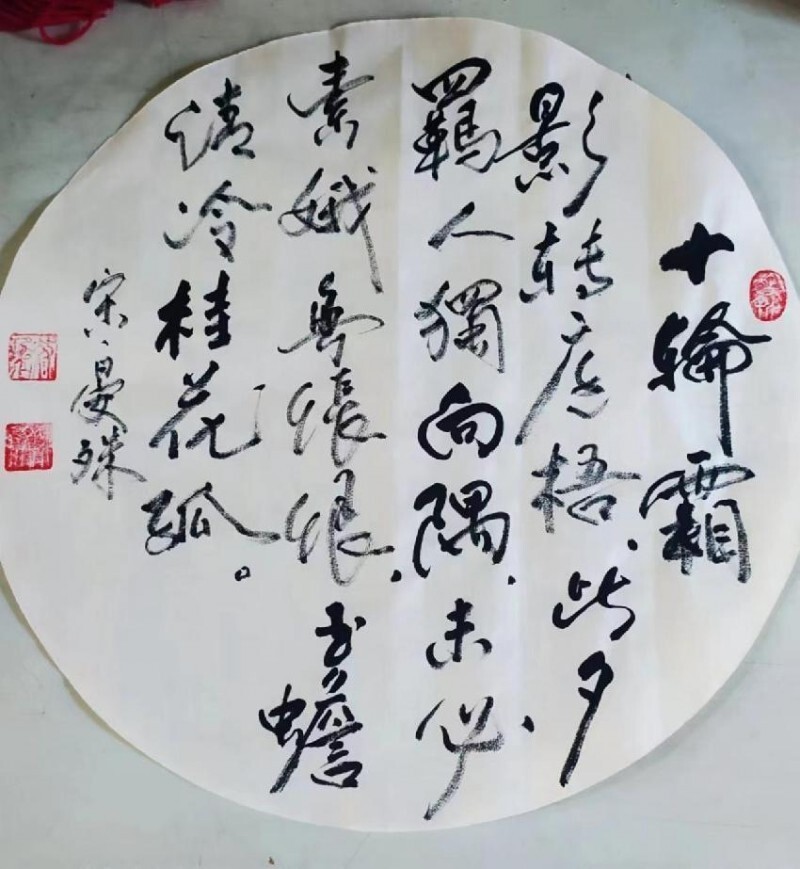 十輪霜
影轉庭梧、此夕
羈人獨向隅、未必、
素娥無悵恨、玉蟾
清冷桂花孤。
宋、晏殊